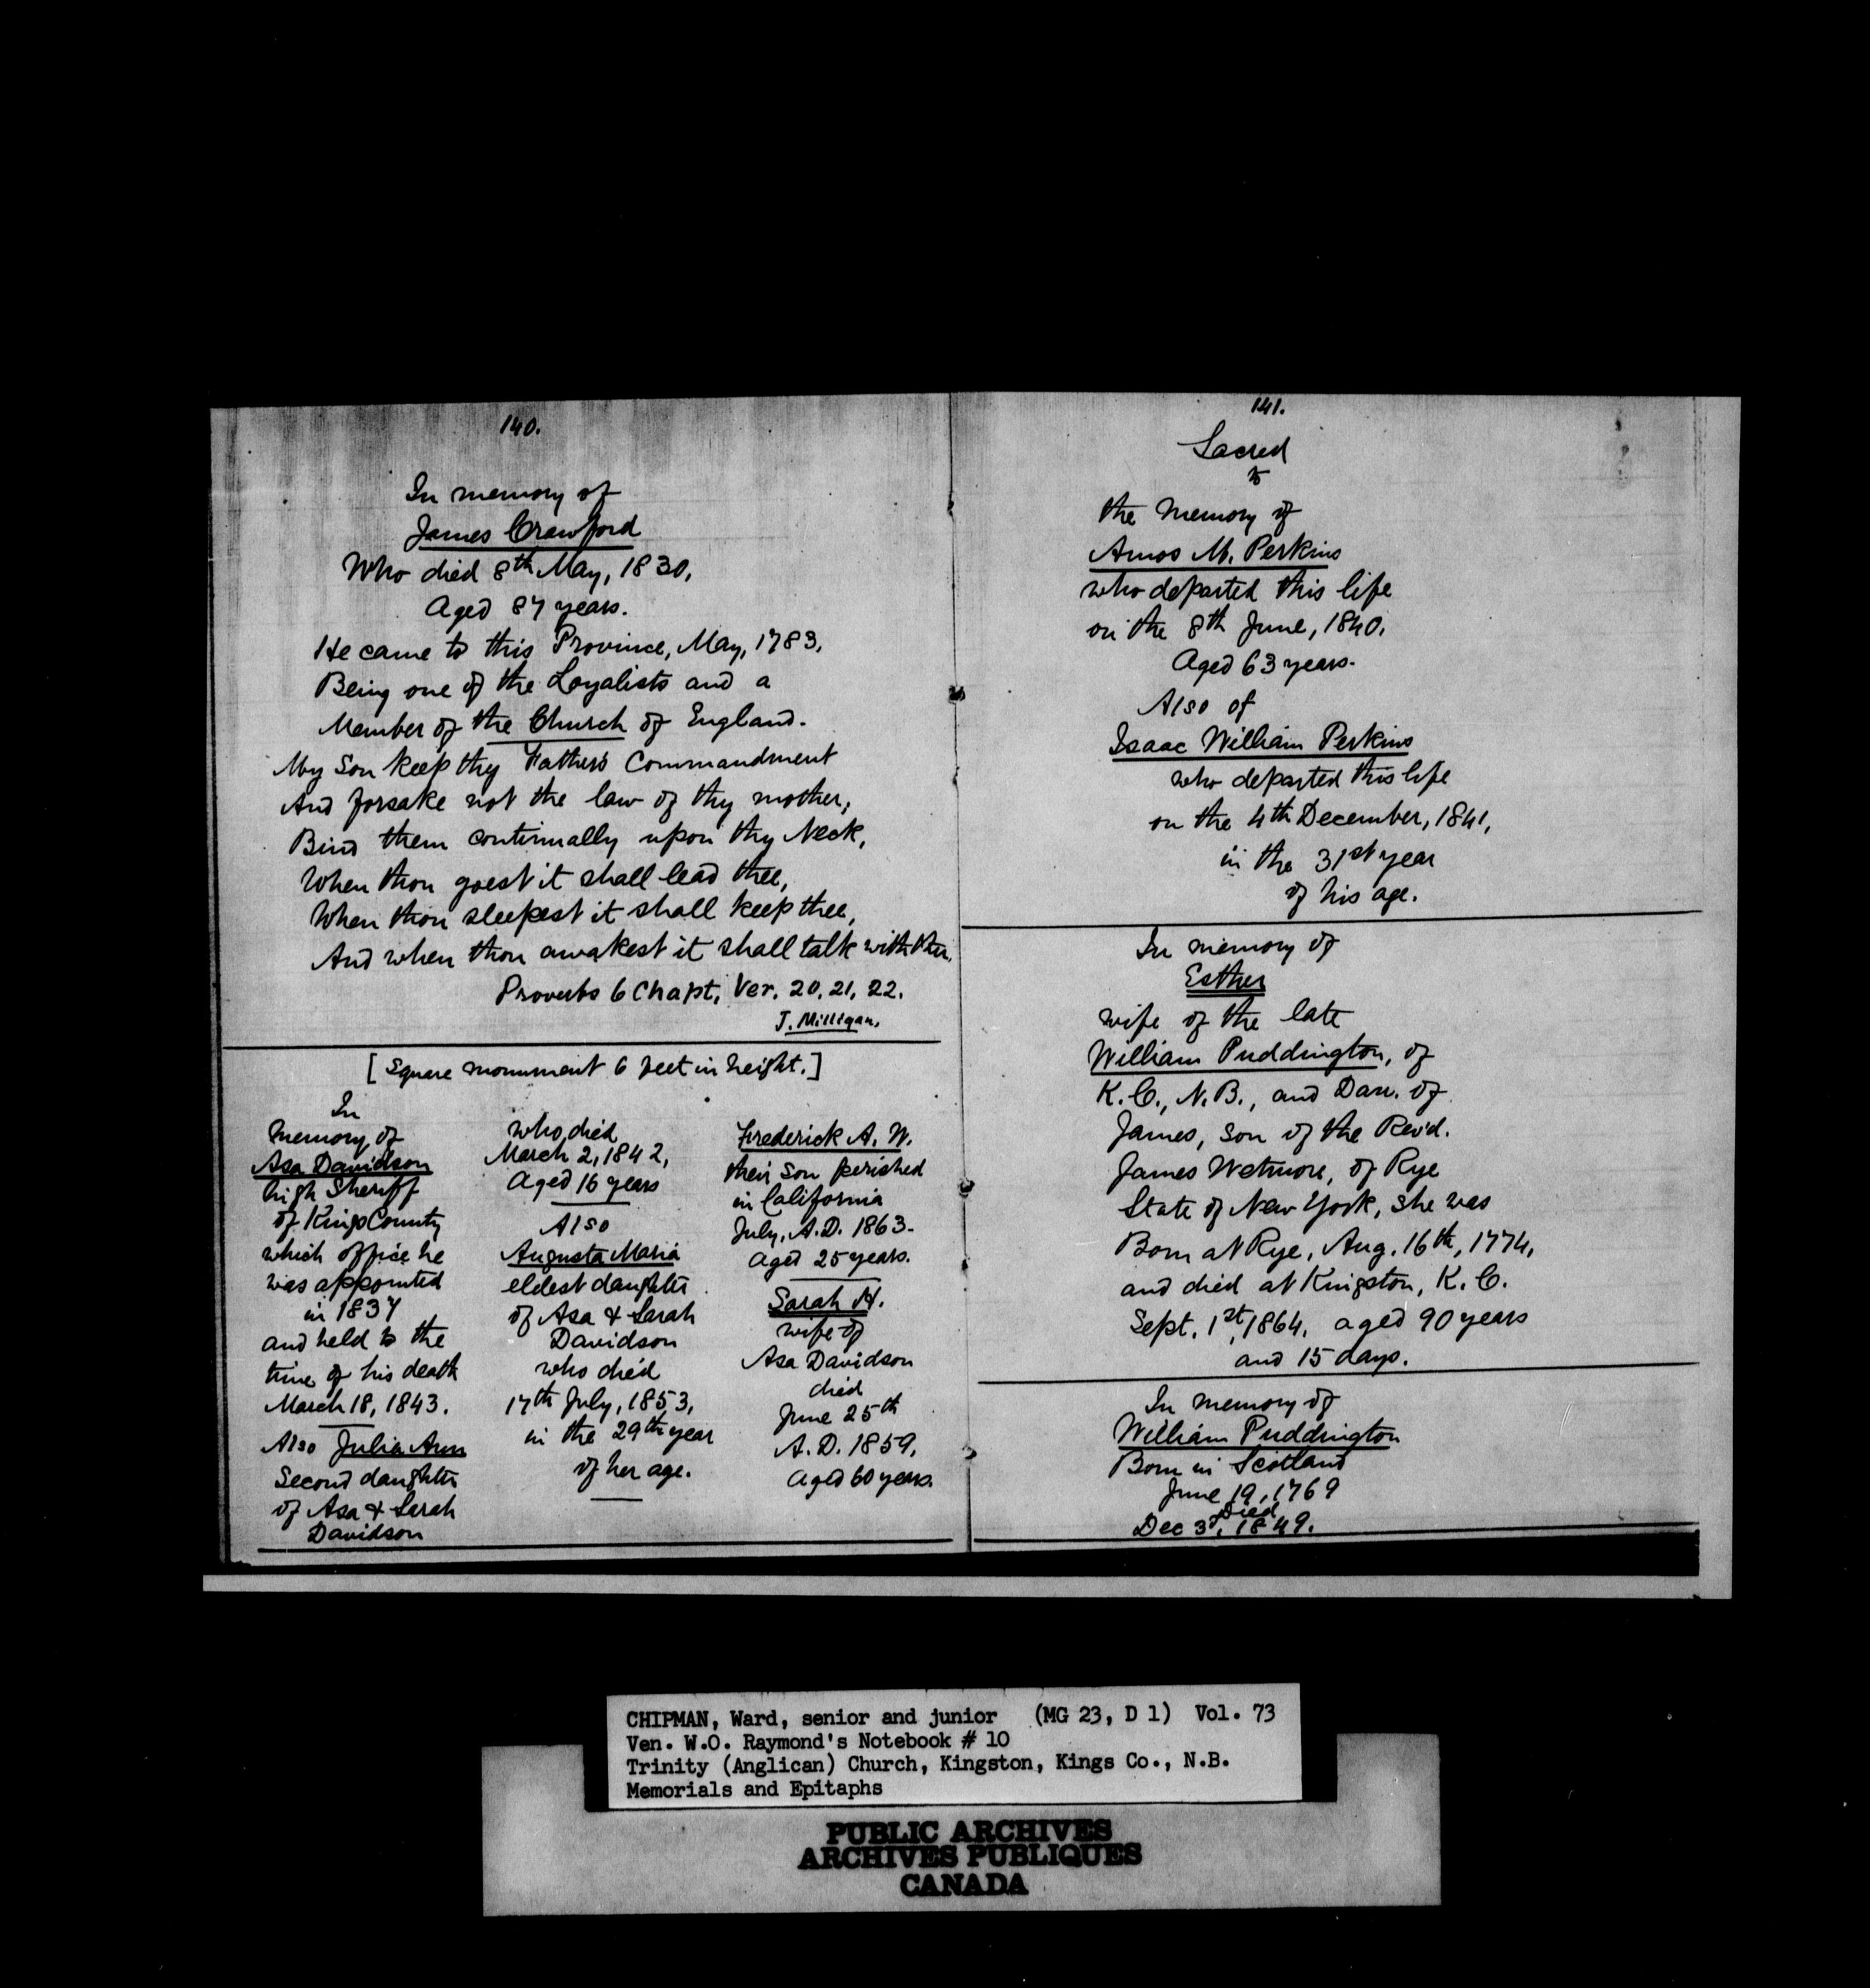 140.
In memory of
James Crawford
Who died 8th May, 1830,
Aged 87 years.
He came to this Province, May, 1783,
Being one of the Loyalists and a
Member of the Church of England.
My Son keep thy Father's Commandment
And forsake not the law of thy mother,
Bind them continually upon thy Neck,
When thou goest it shall lead thee,
When thou sleepest it shall keep thee,
And when thou awakest it shall talk with thee.
Proverbs 6 Chapt, Ver. 20, 21, 22.
J. Milligan.
[Square monument 6 feet in height.]
In
Memory of
Asa Davidson
high Sheriff
of Kings County
which office he
was appointed
in 1837
and held to the
time of his death
March 18, 1843.
Also Julia Ann
Second daughter
of Asa & Sarah
Davidson
who died
March 2, 1842,
Aged 16 years
Also
Augusta Maria
eldest daughter
of Asa & Sarah
Davidson
who died
17th July, 1853,
in the 29th year
of her age.
Frederick A. W.
their son perished
in California
July, A.D. 1863.
aged 25 years.
Sarah H.
wife of
Asa Davidson
died
June 25th
A.D. 1859,
aged 60 years.
141.
Sacred
to
the Memory of
Amos M. Perkins
who departed this life
on the 8th June, 1840.
Aged 63 years.
Also of
Isaac William Perkins
who departed this life
on the 4th December, 1841,
in the 31st year
of his age.
In memory of
Esther
wife of the late
William Puddington, of
K.C., N.B., and Dau. of
James, son of the Rev'd.
James Wetmore, of Rye
State of New York, she was
Born at Rye, Aug. 16th, 1774,
and died at Kingston, K.C.
Sept. 1st, 1864, aged 90 years
and 15 days.
In memory of
William Puddington
Born in Scotland
June 19, 1769
Died
Dec 3d, 1849.
CHIPMAN, Ward, senior and junior (MG 23, D 1) Vol. 73
Ven. W.O. Raymond's Notebook # 10
Trinity (Anglican) Church, Kingston, Kings Co., N.B.
Memorials and Epitaphs
PUBLIC ARCHIVES
ARCHIVES PUBLIQUES
CANADA